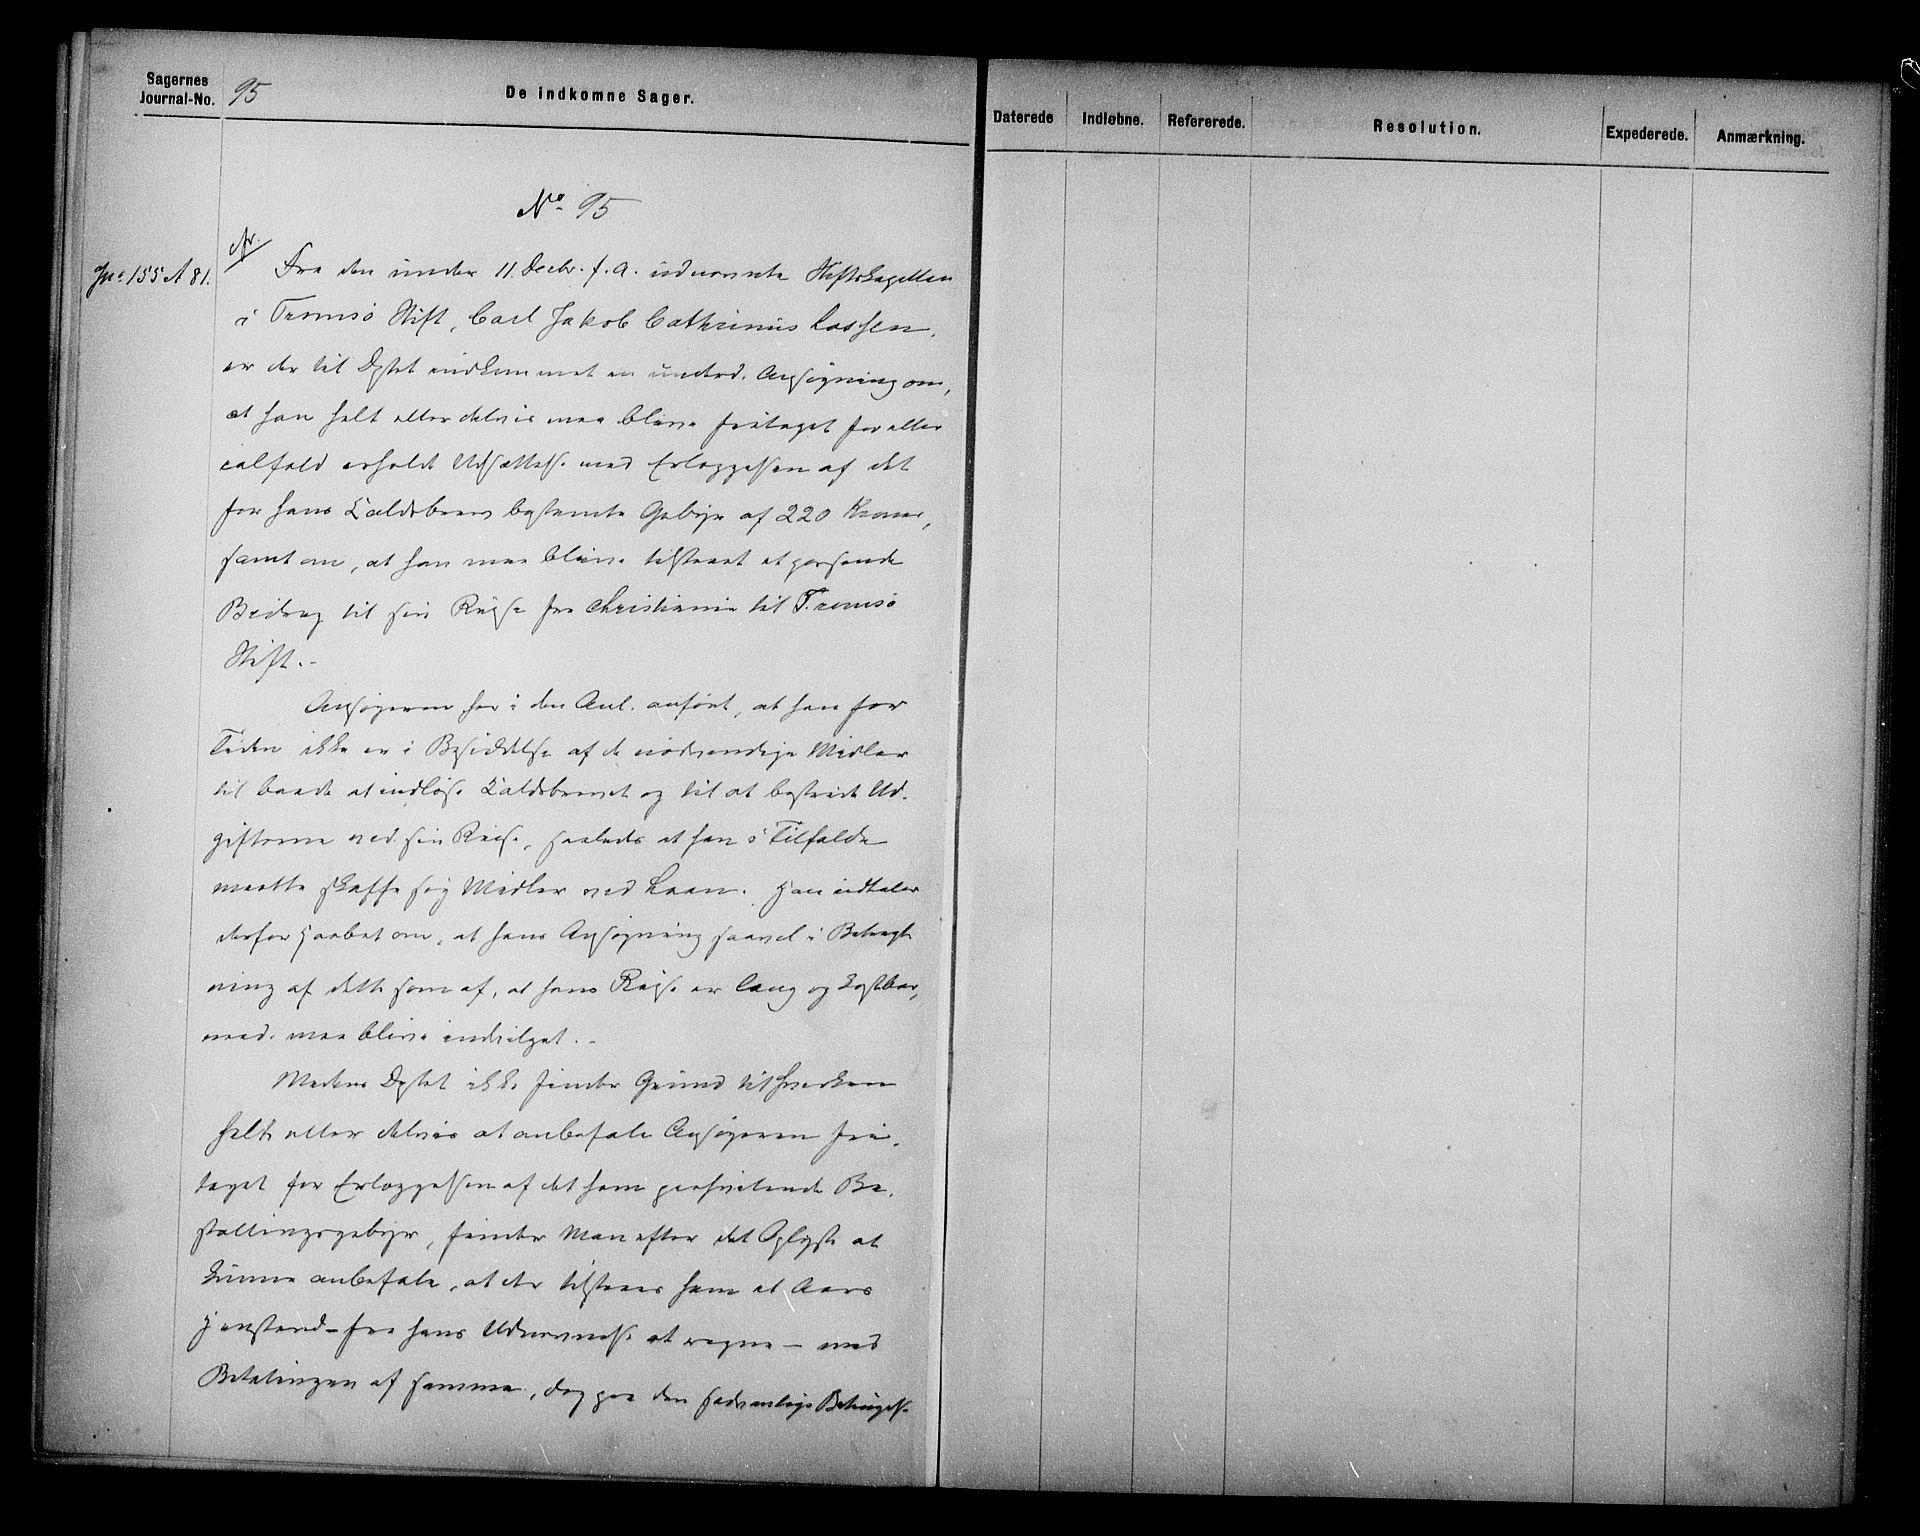 Sagernes
Journal-No.
95
De indkomne Sager.
Daterede
Indløbne.
Refererede.
Resolution.
Expederede.
Anmærkning.
No 95
Jnr 155 A 81.
Fra den under 11 Decbr. f. A. udnævnte Stiftskapellan
i Tromsø Stift, Carl Jakob Cathrinus Lassen,
er der til Dptet indkommet en underd. Ansøgning om,
at han helt eller delvis maa blive fritaget for eller
ialfald erholde Udsættelse med Erlæggelsen af det
for hans Kaldsbrev bestemte Gebyr af 220 Kroner,
samt om, at han maa blive tilstaaet et passende
Bidrag til sin Reise fra Christiania til Tromsø
Stift. -
Ansøgeren har i den Anl. anført, at han for
Tiden ikke er i Besiddelse af de nødvendige Midler
til baade at indløse Kaldsbrevet og til at bestride Ud-
gifterne ved sin Reise, saaledes at han i Tilfælde
maatte skaffe sig Midler ved Laan. Han udtaler
derfor Haabet om, at hans Ansøgning saavel i Betragt
ning af dette som af, at hans Reise er lang og kostbar,
maa blive indvilget. -
Medens Dptet ikke finder Grund til hverken
helt eller delvis at anbefale Ansøgeren fri-
taget for Erlæggelsen af det ham paahvilende Be-
stallingsgebyr, finder Man efter det Oplyste at
kunne anbefale, at der tilstaaes ham et Aars
Henstand - fra hans Udnævnelse at regne - med
Betalingen af samme, dog paa den sædvanlige Betingelse